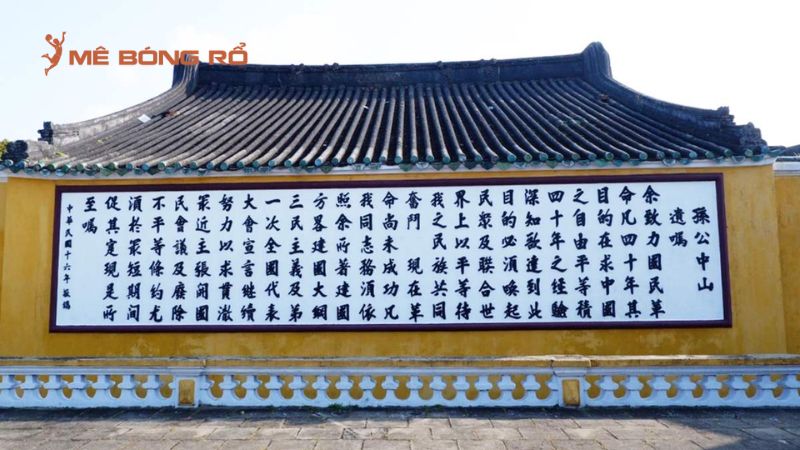 MÊ BÓNG RỔ
孫公中山
遺囑
余致力國民革
命凡四十年其
目的在求中國
之自由平等積
四十年之經驗
深知欲達到此
目的必須喚起
民眾及聯合世
界上以平等待
我之民族共同
奮鬥 現在革
命尚未成功凡
我同志務須依
照余所著建國
方畧建國大綱
三民主義及第
一次全國代表
大會宣言繼續
努力以求貫澈
冣近主張開國
民會議及廢除
不平等條約尤
須於冣短期間
促其實現是所
至囑
中華民國十六年